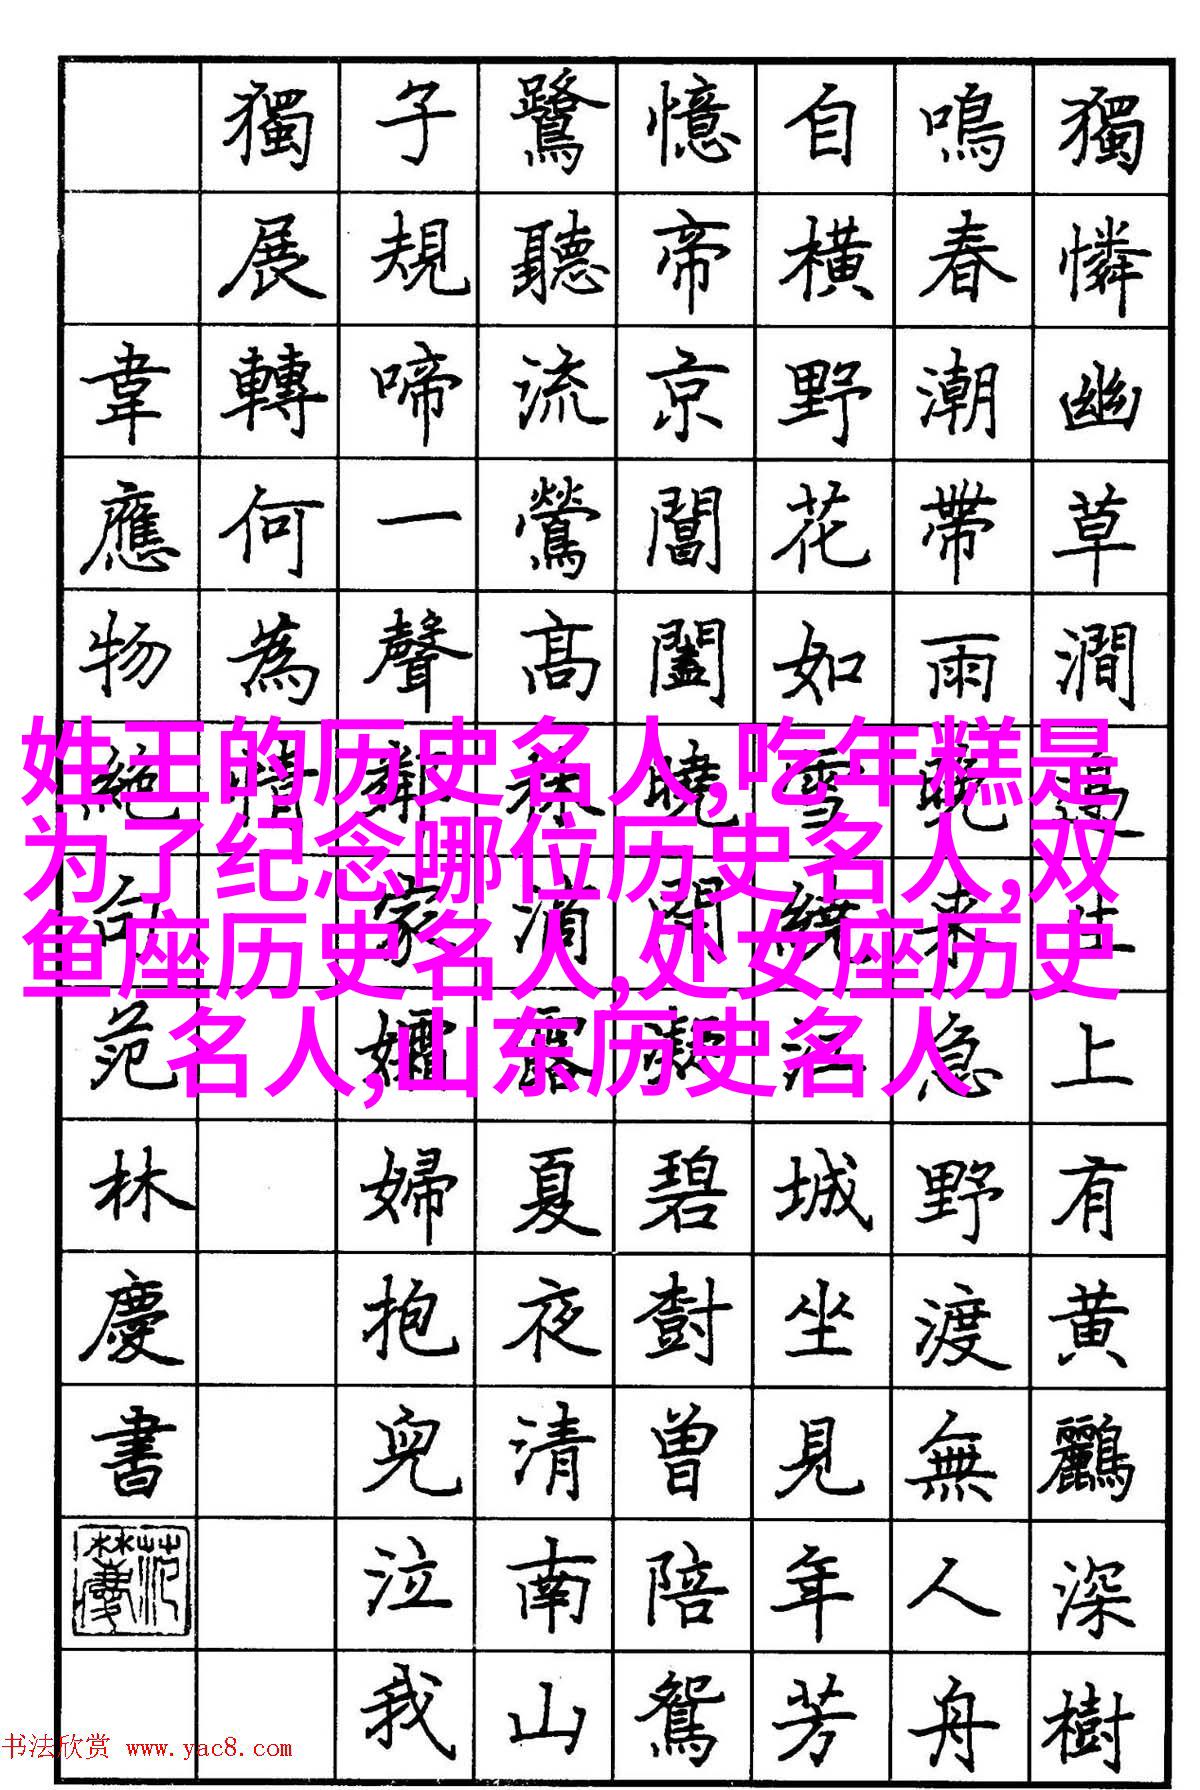 獨憐幽草澗邊生上有黄鸝深樹
鳴春潮帶雨晚來急野渡無人舟
自橫野花如雪繞江城坐見年芳
憶帝京閶闔曉開凝碧樹曾陪鴛
鷺聽流鶯高林滴露夏夜清南山
子規啼一聲鄰家孀婦抱兒泣我
獨展轉何為情
韋應物絕句范林慶書
范林慶
姓王的历史名人,吃年糕是
为了纪念哪位历史名人,双
鱼座历史名人,处女座历史
名人,山东历史名人
书法欣赏 www.yac8.com